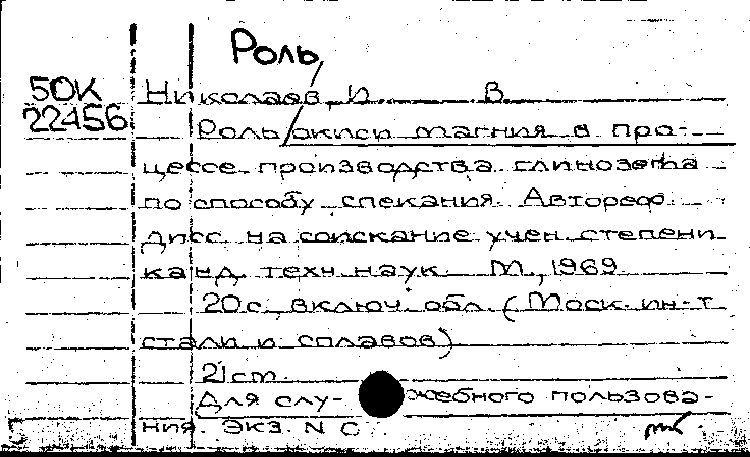 Роль
50К
22456
Николаев, И. В.
Роль/окиси магния в про-
цессе производства глинозема
по способу спекания. Автореф.
дисс. на соискание учен. степени
канд. техн. наук. М., 1969.
20 с., включ. обл. (Моск. ин-т
стали и сплавов)
21 см.
Для слу- жебного пользова-
ния. Экз. N С